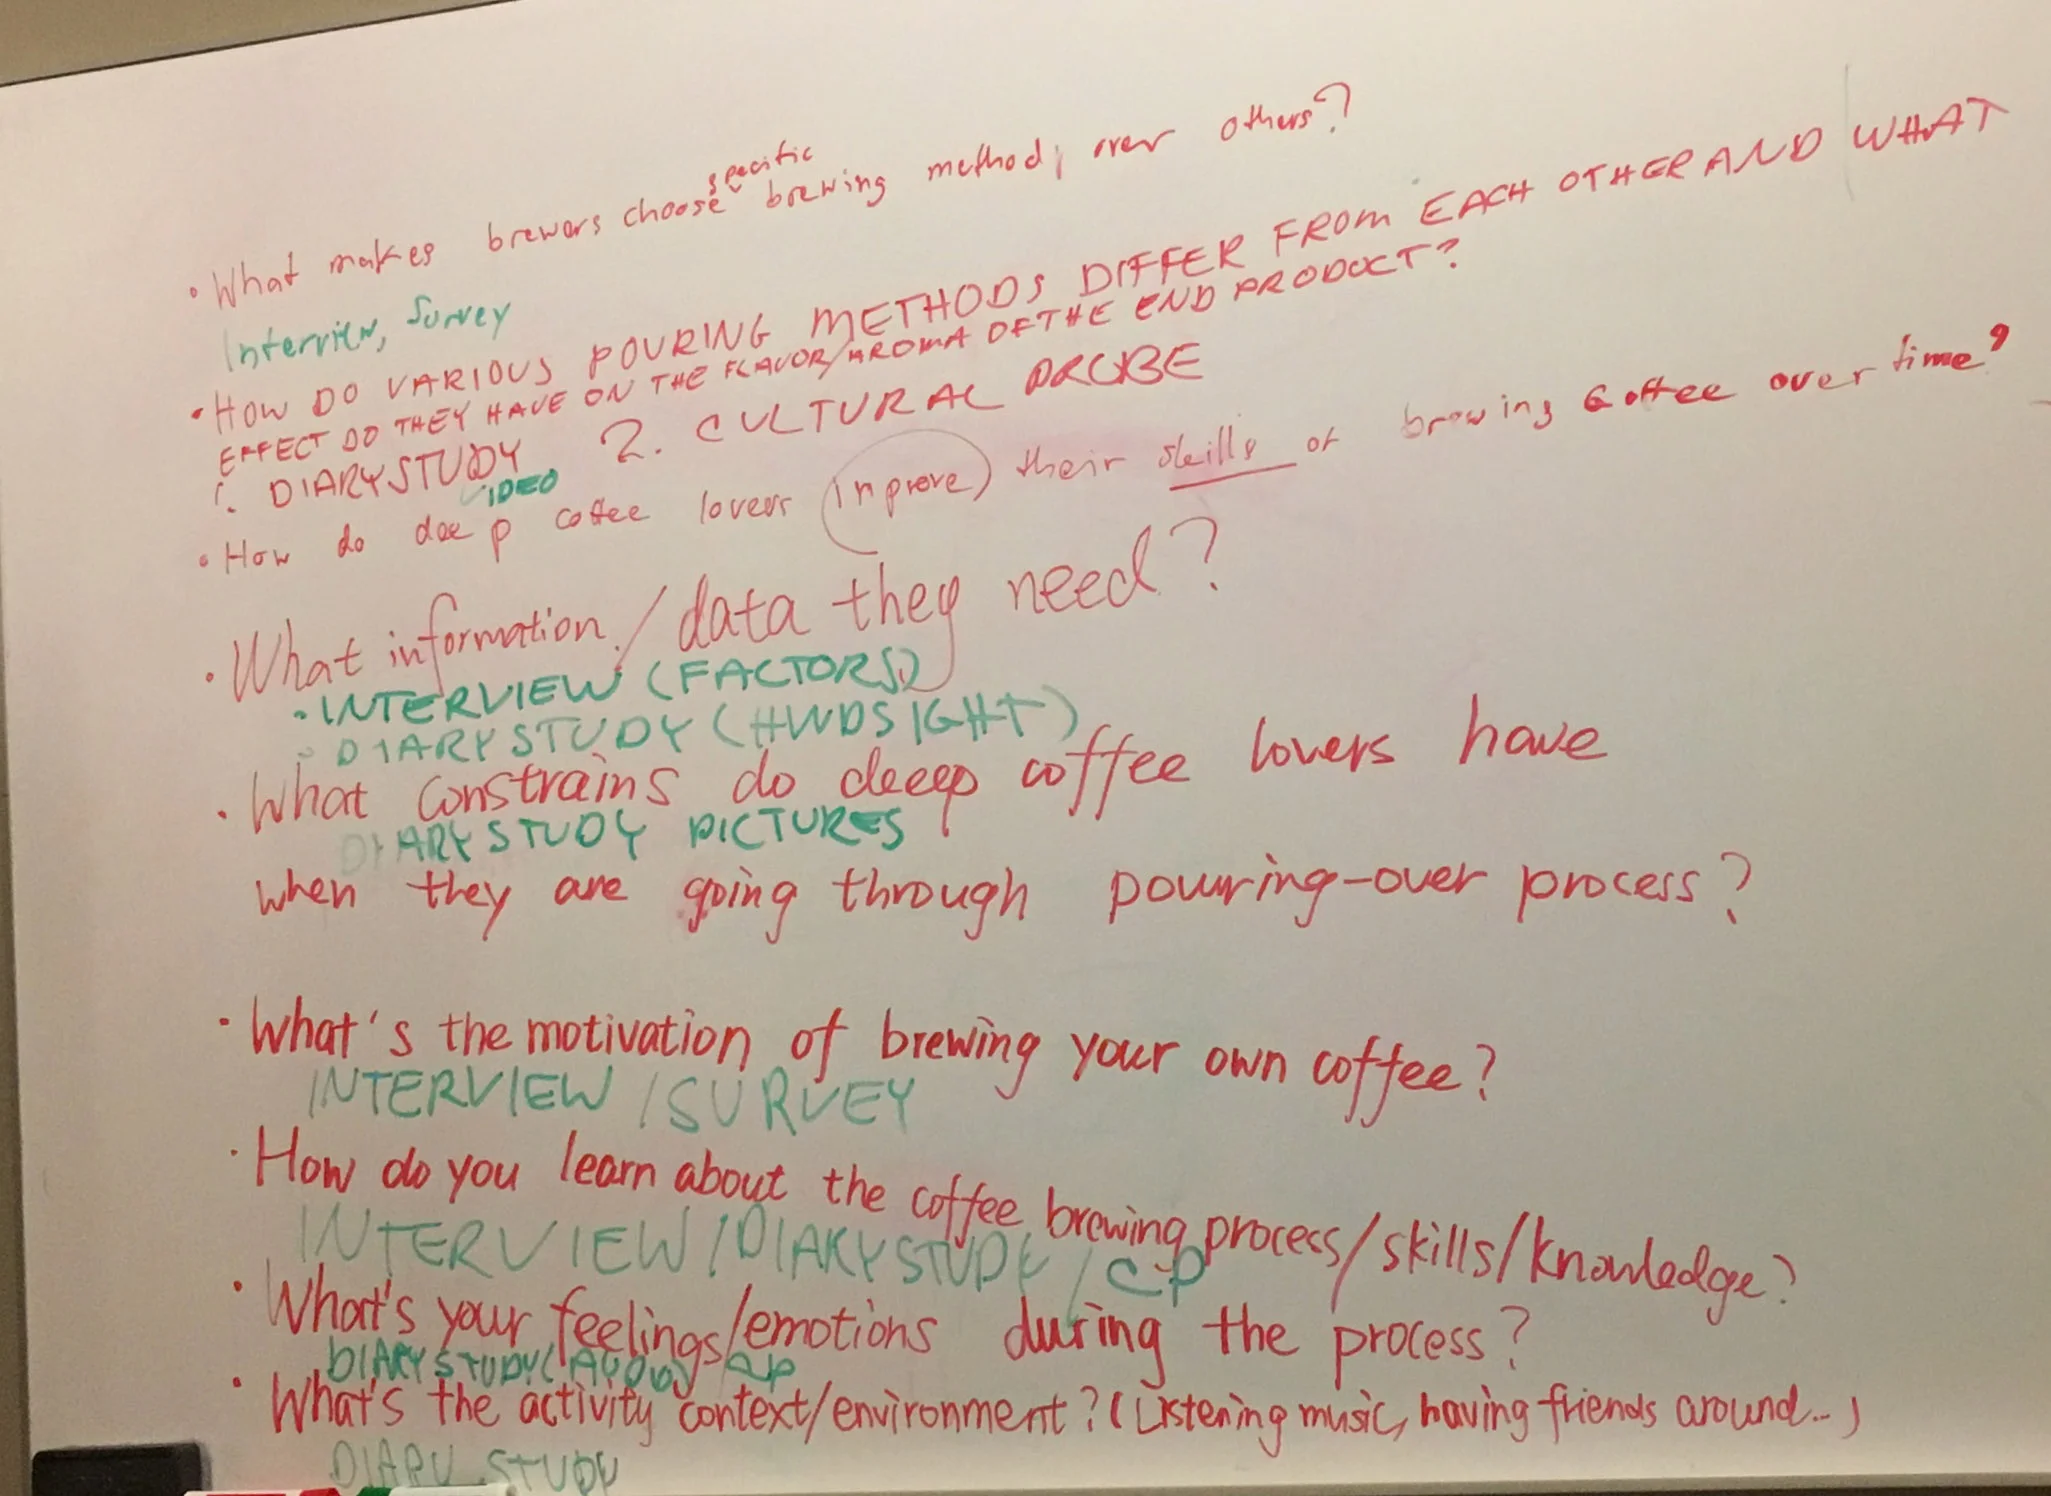 • What makes brewers choose specific brewing method, over others?
Interview, Survey
• HOW DO VARIOUS POURING METHODS DIFFER FROM EACH OTHER AND WHAT
EFFECT DO THEY HAVE ON THE FLAVOR/AROMA OF THE END PRODUCT?
1. DIARY STUDY 2. CULTURAL PROBE
VIDEO
• How do deep coffee lovers (inprove) their skills of brewing coffee over time?
• What information/data they need?
• INTERVIEW (FACTORS)
• DIARY STUDY (HWDSIGHT)
• What constrains do deeep coffee lovers have
DIARY STUDY PICTURES
when they are going through pouring-over process?
• What's the motivation of brewing your own coffee?
INTERVIEW / SURVEY
• How do you learn about the coffee brewing process/skills/knowledge?
INTERVIEW / DIARY STUDY / C-P
• What's your feelings/emotions during the process?
DIARY STUDY (AUDIO)
• What's the activity context/environment? (Listening music, having friends around...)
DIARY STUDY